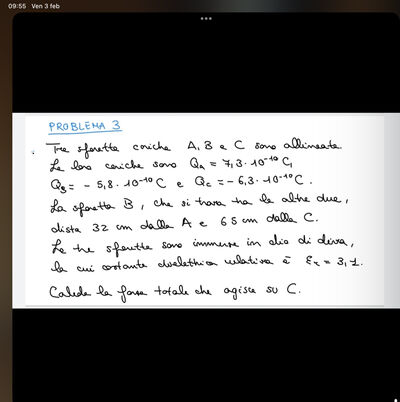 09:55 Ven 3 feb
PROBLEMA 3
Tre sferette cariche A, B e C sono allineate
Le loro cariche sono QA = 7,3·10⁻¹⁰ C,
QB = - 5,8·10⁻¹⁰ C e QC = - 6,3·10⁻¹⁰ C.
La sferetta B, che si trova tra le altre due,
dista 32 cm dalla A e 65 cm dalla C.
Le tre sferette sono immerse in olio di oliva,
la cui costante dielettrica relativa è εr = 3,1.
Calcola la forza totale che agisce su C.